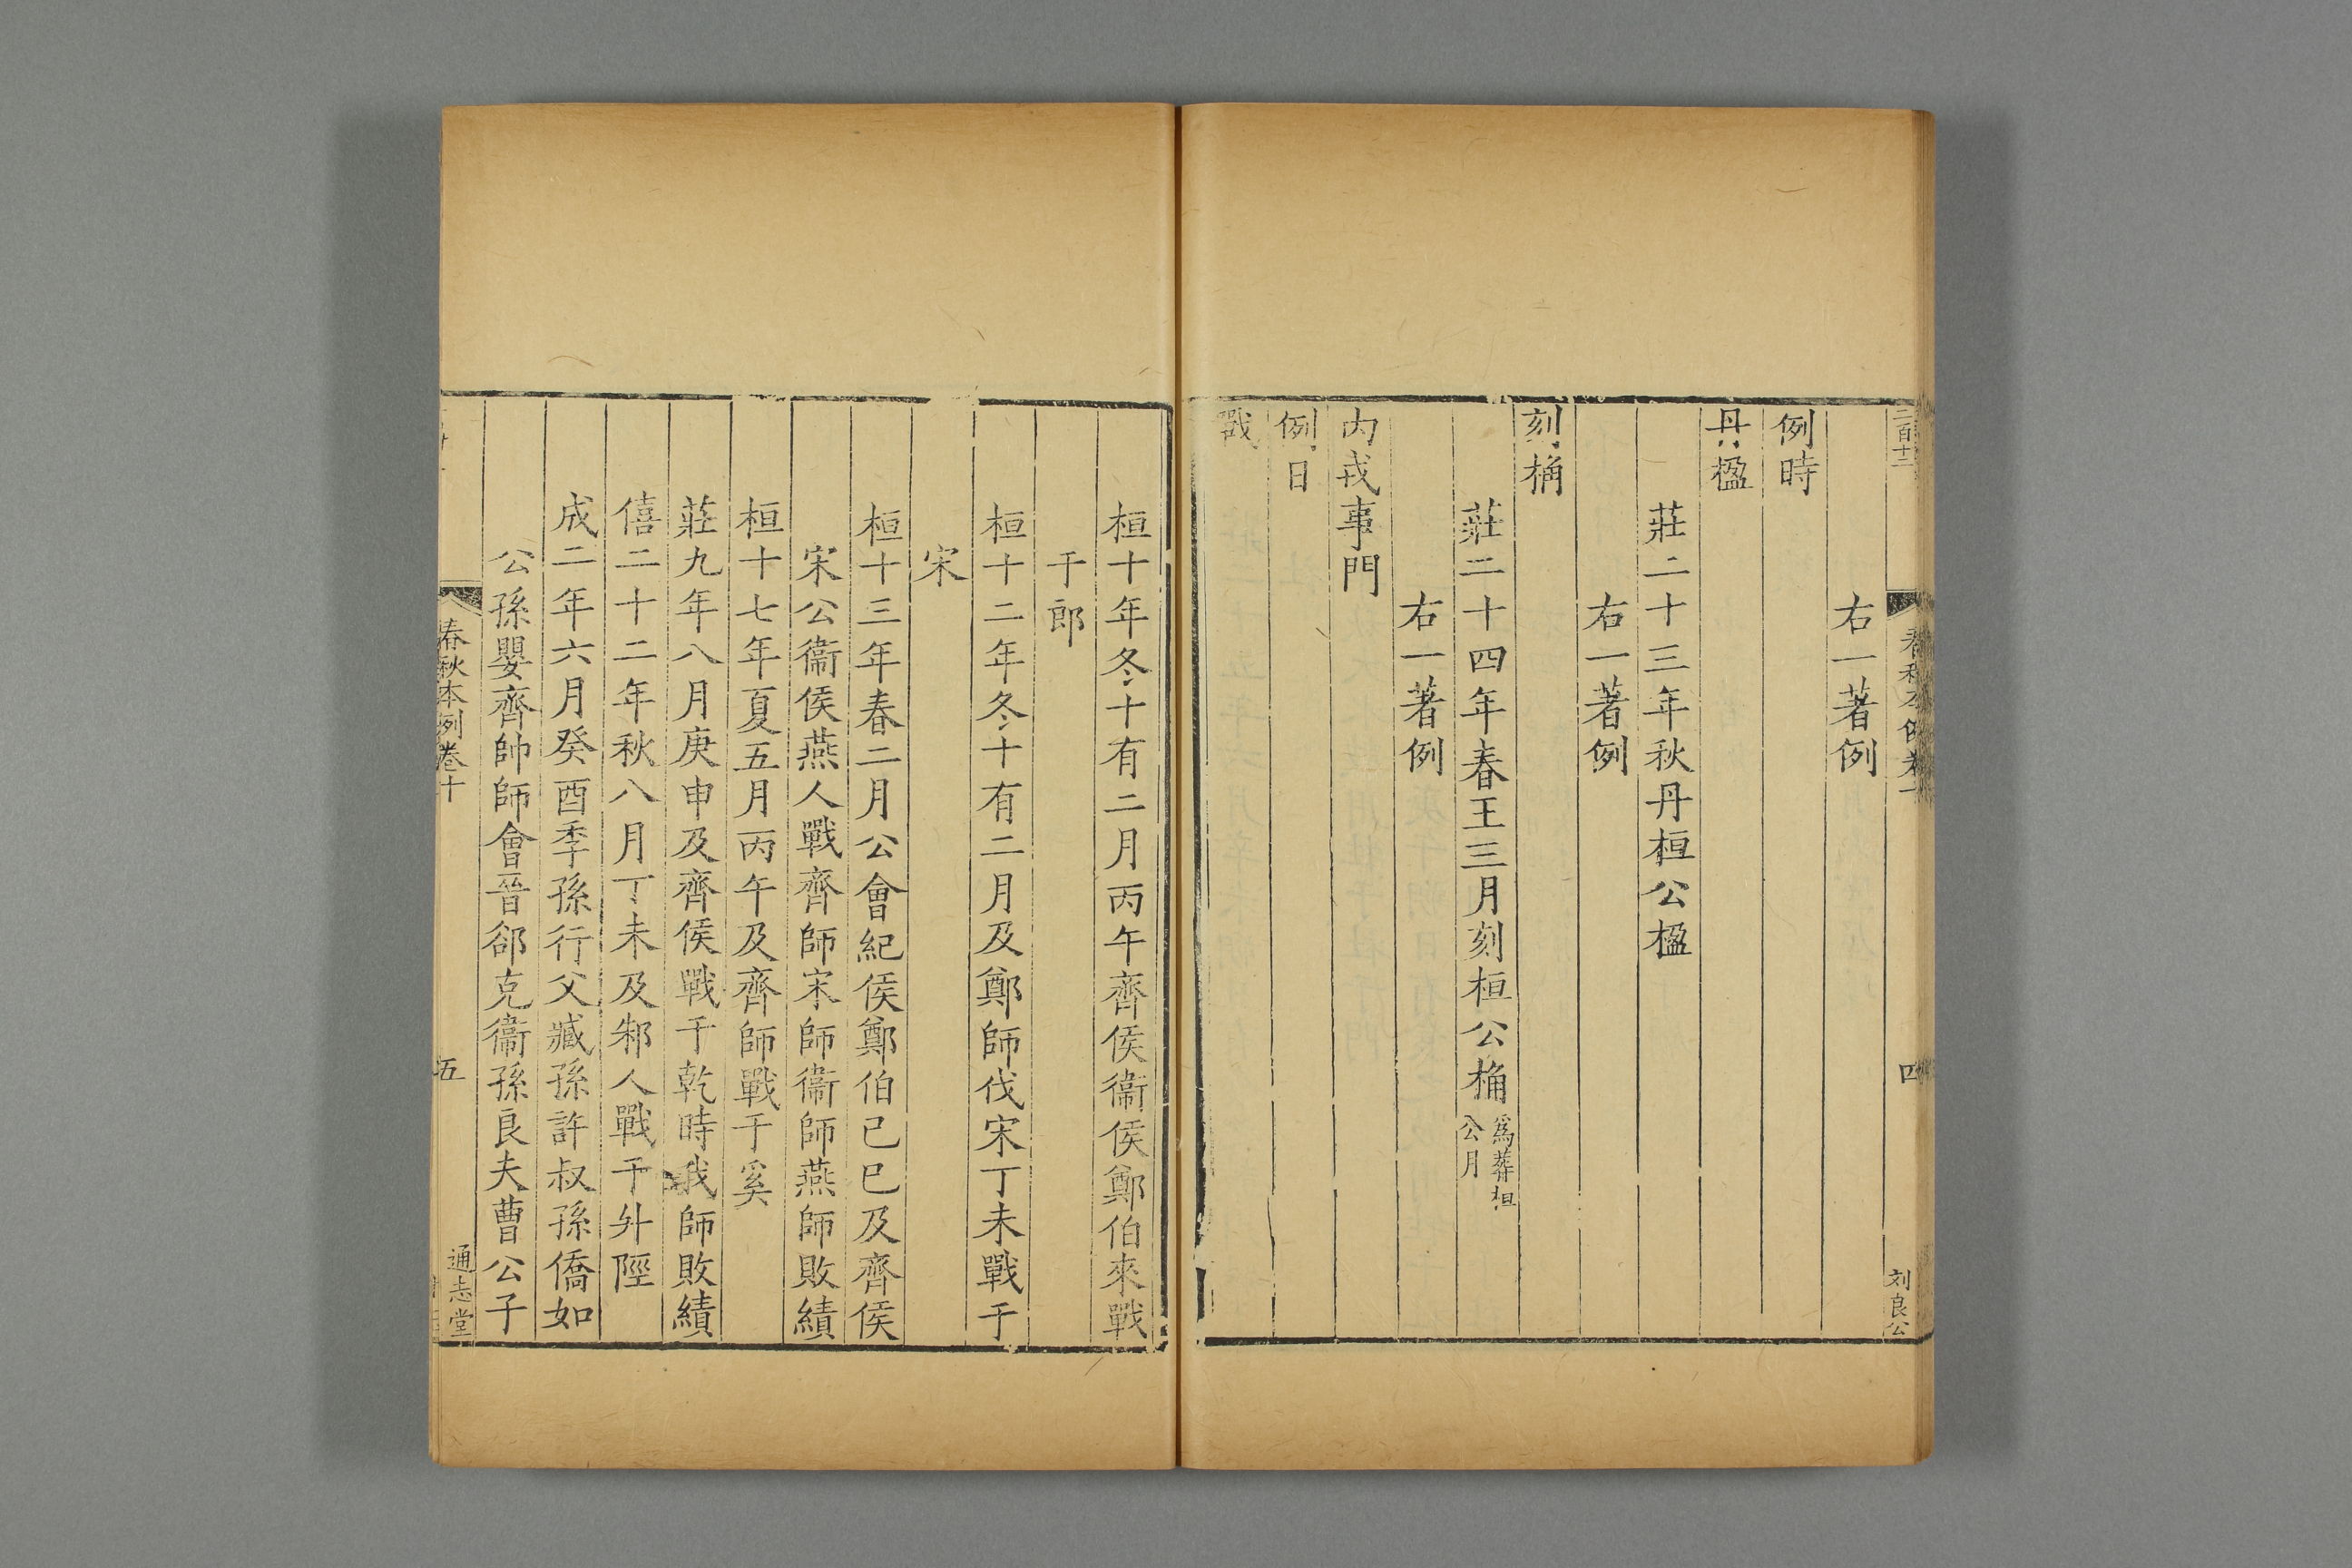 二百十二
四
刘良公
右一著例
例時
丹楹
莊二十三年秋丹桓公楹
右一著例
刻桷
莊二十四年春王三月刻桓公桷為葬桓公月
右一著例
内戎事門
例日
戰
桓十年冬十有二月丙午齊侯衞侯鄭伯來戰
于郎
桓十二年冬十有二月及鄭師伐宋丁未戰于
宋
桓十三年春二月公會紀侯鄭伯己巳及齊侯
宋公衞侯燕人戰齊師宋師衞師燕師敗績
桓十七年夏五月丙午及齊師戰于奚
莊九年八月庚申及齊侯戰于乾時我師敗績
僖二十二年秋八月丁未及邾人戰于升陘
成二年六月癸酉季孫行父臧孫許叔孫僑如
公孫嬰齊帥師會晉郤克衞孫良夫曹公子
春秋本例卷十
五
通志堂